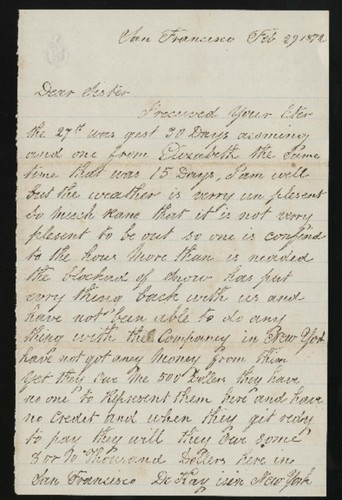 San Francisco Feb 29 1872
Dear Sister
I received your leter
the 27th was gest 30 Days acoming
and one from Elizabeth the same
time that was 15 Days, I am well
but the weather is verry un plesent
so mutch rane that it is not verry
plesent to be out so one is confind
to the hous more than is neaded
the blockad of snow has put
evry thing back with us and
have not been able to do any
thing with the Company in New York
have not got any money from them
yet they owe me 500 Dollers they have
no one to represent them here and have
no credit and when they get redy
to pay they will they owe some
8 or 10 thousand Dollers here in
San Francisco De Kay is in New York